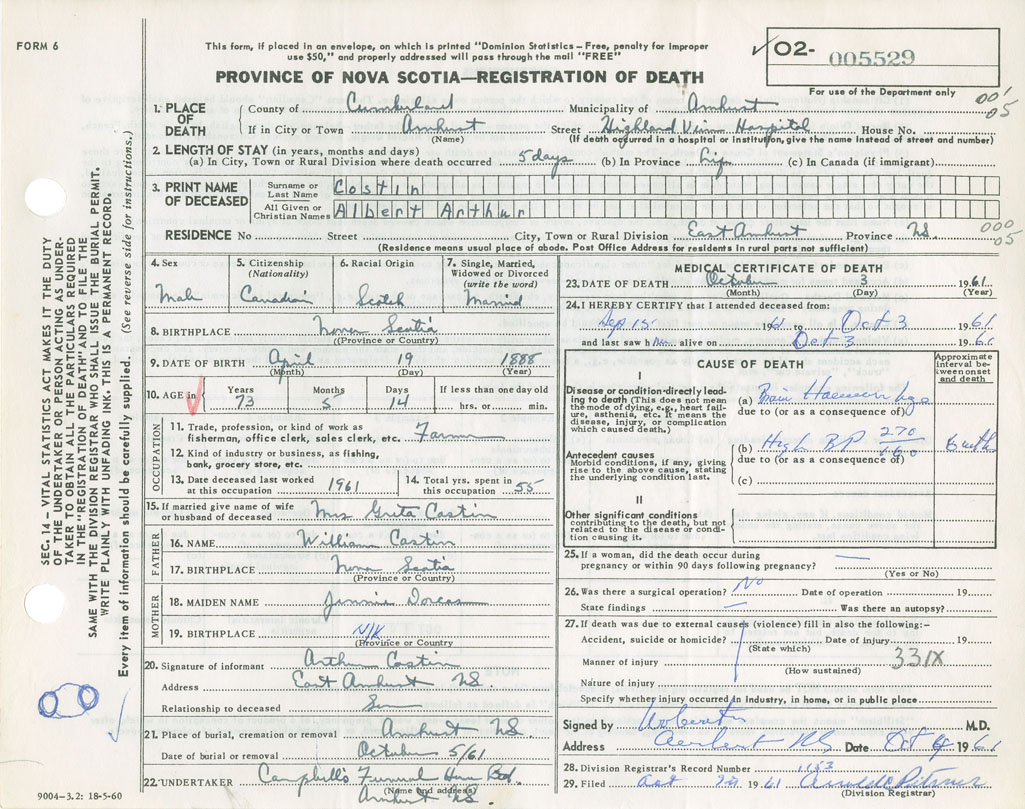 FORM 6
This form, if placed in an envelope, on which is printed "Dominion Statistics – Free, penalty for improper
use $50," and properly addressed will pass through the mail "FREE"
✓ O2- 005529
For use of the Department only
PROVINCE OF NOVA SCOTIA—REGISTRATION OF DEATH
001
05
1. PLACE OF DEATH County of Cumberland Municipality of Amherst
If in City or Town Amherst Street Highland View Hospital House No.
(Name) (If death occurred in a hospital or institution, give the name instead of street and number)
2. LENGTH OF STAY (in years, months and days)
(a) In City, Town or Rural Division where death occurred 5 days (b) In Province Life (c) In Canada (if immigrant)
3. PRINT NAME OF DECEASED Surname or Last Name Costin
All Given or Christian Names Albert Arthur
000
05
RESIDENCE No. Street City, Town or Rural Division East Amherst Province N.S.
(Residence means usual place of abode. Post Office Address for residents in rural parts not sufficient)
4. Sex Male
5. Citizenship (Nationality) Canadian
6. Racial Origin Scotch
7. Single, Married, Widowed or Divorced (write the word) Married
8. BIRTHPLACE Nova Scotia
(Province or Country)
9. DATE OF BIRTH April 19 1888
(Month) (Day) (Year)
10. AGE in Years 73 Months 5 Days 14 If less than one day old hrs. or min.
OCCUPATION
11. Trade, profession, or kind of work as
fisherman, office clerk, sales clerk, etc. Farmer
12. Kind of industry or business, as fishing,
bank, grocery store, etc.
13. Date deceased last worked at this occupation 1961
14. Total yrs. spent in this occupation 55
15. If married give name of wife
or husband of deceased Mrs Greta Costin
FATHER
16. NAME William Costin
17. BIRTHPLACE Nova Scotia
(Province or Country)
MOTHER
18. MAIDEN NAME Jennie Dorcas
19. BIRTHPLACE N/K
(Province or Country)
20. Signature of informant Arthur Costin
Address East Amherst N.S.
Relationship to deceased Son
21. Place of burial, cremation or removal Amherst NS
Date of burial or removal October 5/61
22. UNDERTAKER Campbell's Funeral Home
(Name and address)
Amherst NS
9004–3.2: 18-5-60
MEDICAL CERTIFICATE OF DEATH
23. DATE OF DEATH October 3 1961
(Month) (Day) (Year)
24. I HEREBY CERTIFY that I attended deceased from:
Sep 15 1961 to Oct 3 1961
and last saw him alive on Oct 3 1961
CAUSE OF DEATH
Approximate interval between onset and death
I
Disease or condition directly leading to death (This does not mean the mode of dying, e.g., heart failure, asthenia, etc. It means the disease, injury, or complication which caused death.)
(a) Brain Haemorrhage
due to (or as a consequence of)
Antecedent causes
Morbid conditions, if any, giving rise to the above cause, stating the underlying condition last.
(b) High BP 270/160
due to (or as a consequence of)
(c)
II
Other significant conditions
contributing to the death, but not related to the disease or condition causing it.
25. If a woman, did the death occur during
pregnancy or within 90 days following pregnancy? —
(Yes or No)
26. Was there a surgical operation? No Date of operation 19
State findings — Was there an autopsy?
27. If death was due to external causes (violence) fill in also the following:-
Accident, suicide or homicide? Date of injury 19
(State which)
Manner of injury 331X
(How sustained)
Nature of injury
Specify whether injury occurred in industry, in home, or in public place
Signed by M.D.
Address N.S. Date Oct 4 1961
28. Division Registrar's Record Number 1153
29. Filed 1961
(Division Registrar)
SEC. 14 – VITAL STATISTICS ACT MAKES IT THE DUTY
OF THE UNDERTAKER OR PERSON ACTING AS UNDER-
TAKER TO OBTAIN ALL THE PARTICULARS REQUIRED
IN THE "REGISTRATION OF DEATH" AND TO FILE THE
SAME WITH THE DIVISION REGISTRAR WHO SHALL ISSUE THE BURIAL PERMIT.
WRITE PLAINLY WITH UNFADING INK. THIS IS A PERMANENT RECORD.
Every item of information should be carefully supplied. (See reverse side for instructions.)